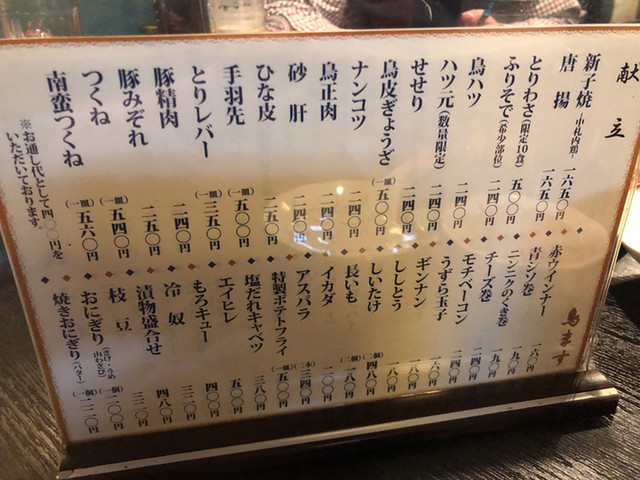 献立
新子焼 -中札内鶏- 一六五〇円
唐揚 一六五〇円
とりわさ(限定10食) 五〇〇円
ふりそで(希少部位) 二四〇円
鳥ハツ 二四〇円
ハツ元(数量限定) 二四〇円
せせり 二四〇円
鳥皮ぎょうざ (一皿)五〇〇円
ナンコツ 二四〇円
鳥正肉 二四〇円
砂肝 二四〇円
ひな皮 二五〇円
手羽先 (一皿)五〇〇円
とりレバー (一皿)三五〇円
豚精肉 二四〇円
豚みぞれ 二五〇円
つくね (一皿)五四〇円
南蛮つくね (一皿)五六〇円
※お通し代として四〇〇円を
いただいております。
鳥ます
赤ウインナー 一六〇円
青シソ巻 一九〇円
ニンニクのくき巻 一九〇円
チーズ巻 二四〇円
モチベーコン 二四〇円
うずら玉子 一六〇円
ギンナン 一八〇円
ししとう 一八〇円
しいたけ (二個)四八〇円
長いも (二個)一八〇円
イカダ 二〇〇円
アスパラ (二本)三四〇円
特製ポテトフライ (一皿)五〇〇円
塩だれキャベツ 三八〇円
エイヒレ 五〇〇円
もろキュー 四〇〇円
冷奴 三二〇円
漬物盛合せ 四八〇円
枝豆 三三〇円
おにぎり (さけ・うめ 山わさび) (一個)二〇〇円
焼きおにぎり(バター) (一個)二二〇円